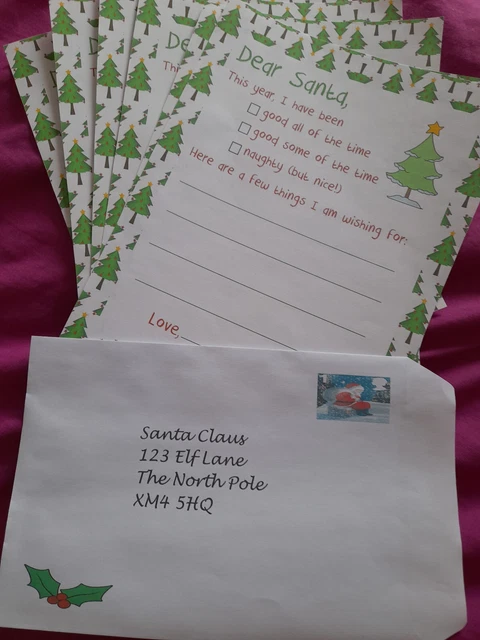 De
Thi
De
Thi
Dear Santa,
This year, I have been
good all of the time
good some of the time
naughty (but nice!)
Here are a few things I am wishing for:
Love,
Santa Claus
123 Elf Lane
The North Pole
XM4 5HQ